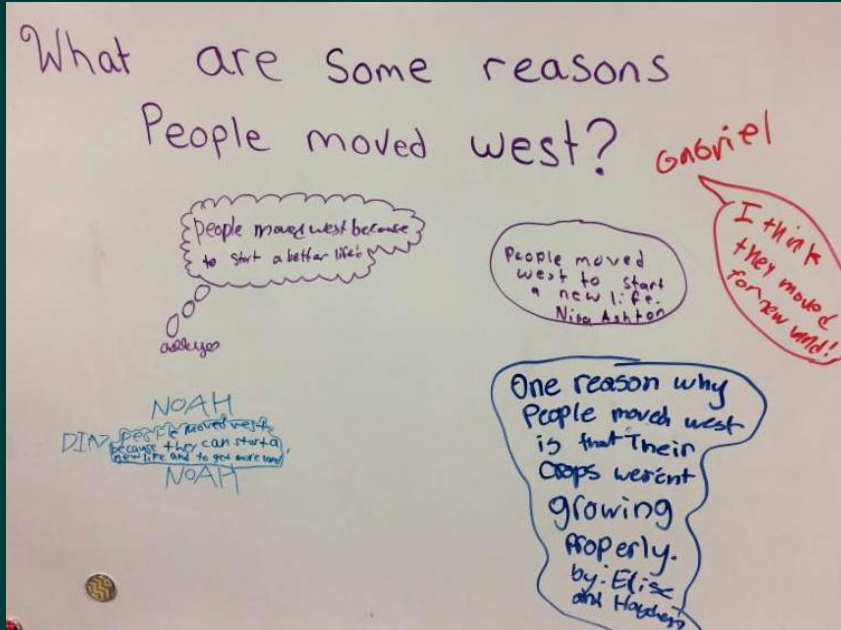 What are some reasons
People moved west?
Gabriel
I think
they moved
for new land!
People moved west because
to start a better life
People moved
west to start
a new life.
Nisa Ashton
NOAH
DIN
people moved west
because they can start a
new life and to get more land
NOAH
One reason why
People moved west
is that Their
Crops weren't
growing
Properly.
by: Elise
and